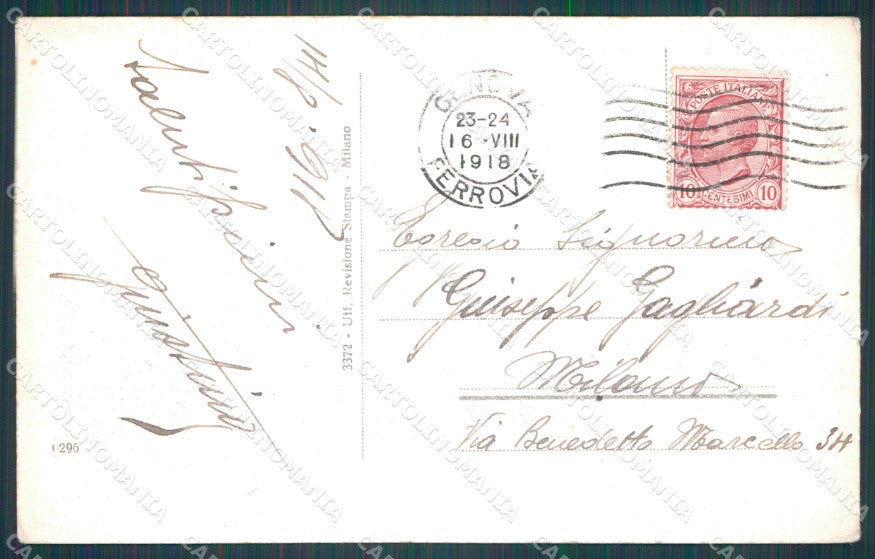 GENOVA
23-24
16·VIII
1918
FERROVIA
POSTE ITALIANE
10 CENTESIMI 10
Egregio Signorino
Giuseppe Gagliardi
Milano
Via Benedetto Marcello 34
3372 - Uff. Revisione Stampa - Milano
0296
CARTOLINOMANIA